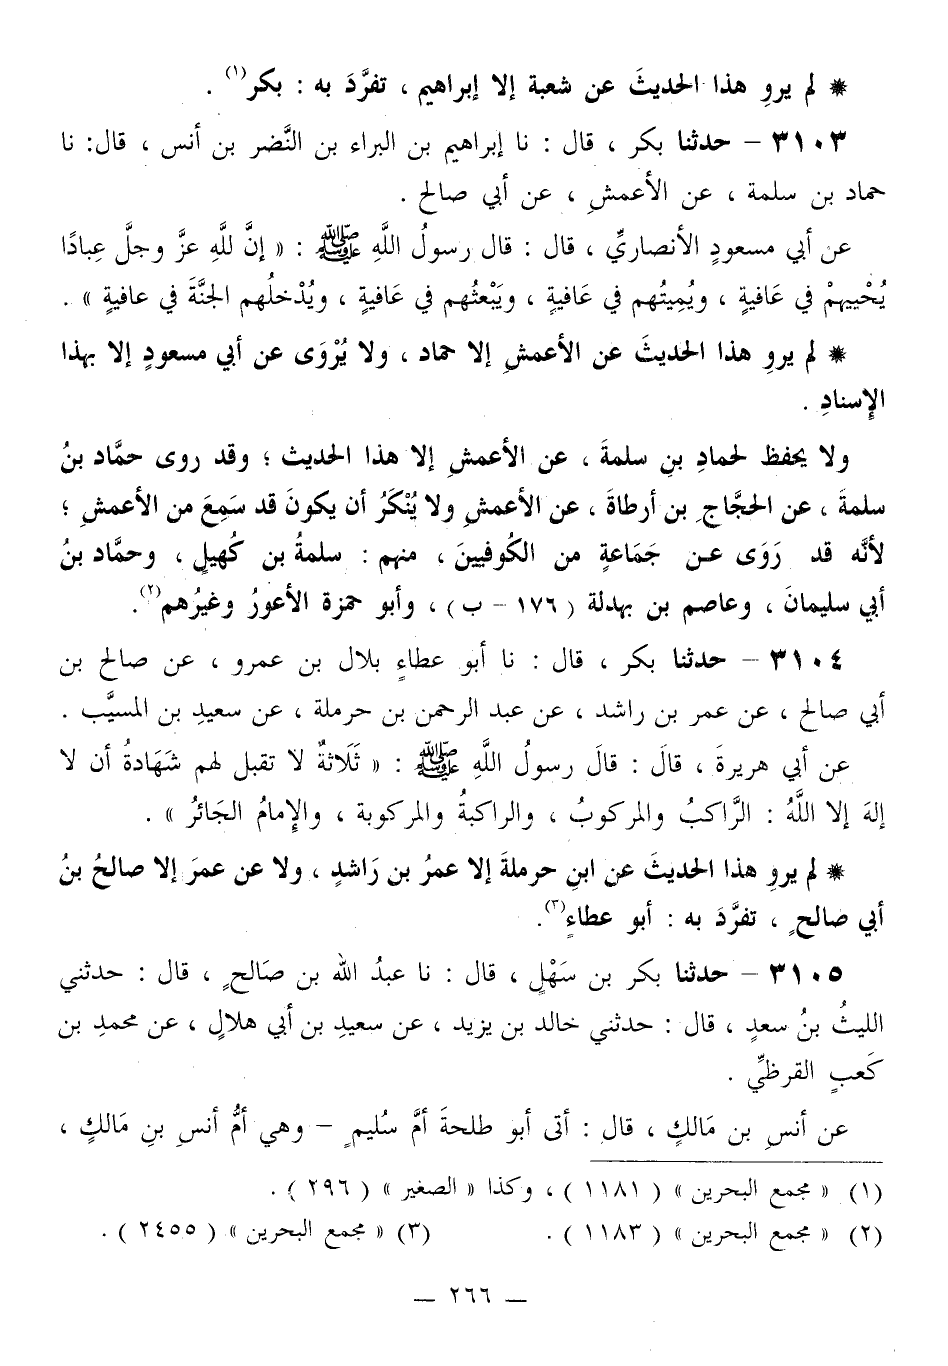 * لم يروِ هذا الحديثَ عن شعبة إلا إبراهيم ، تفرَّدَ به : بكر(١) .
٣١٠٣ – حدثنا بكر ، قال : نا إبراهيم بن البراء بن النَّضر بن أنس ، قال: نا
حماد بن سلمة ، عن الأعمشِ ، عن أبي صالح .
عن أبي مسعودٍ الأنصاريِّ ، قال : قال رسولُ اللَّهِ ﷺ : « إنَّ للَّهِ عزَّ وجلَّ عِبادًا
يُحْييهمْ في عَافيةٍ ، ويُمِيتُهم في عَافيةٍ ، ويَبْعثُهم في عَافيةٍ ، ويُدْخلُهم الجنَّةَ في عافيةٍ » .
* لم يروِ هذا الحديثَ عن الأعمشِ إلا حماد ، ولا يُرْوَى عن أبي مسعودٍ إلا بهذا
الإسنادِ .
ولا يحفظ لحمادِ بنِ سلمةَ ، عن الأعمشِ إلا هذا الحديث ؛ وقد روى حمَّاد بنُ
سلمةَ ، عن الحجَّاجِ بن أرطاةَ ، عن الأعمشِ ولا يُنْكَرُ أن يكونَ قد سَمِعَ من الأعمشِ ؛
لأنَّه قد رَوَى عن جَمَاعةٍ من الكُوفيينَ ، منهم : سلمةُ بن كُهيلٍ ، وحمَّاد بنُ
أبي سليمانَ ، وعاصم بن بهدلة ( ١٧٦ – ب ) ، وأبو حمزة الأعورُ وغيرُهم(٢).
٣١٠٤ – حدثنا بكر ، قال : نا أبو عطاءٍ بلال بن عمرو ، عن صالح بن
أبي صالح ، عن عمر بن راشد ، عن عبد الرحمن بن حرملة ، عن سعيدِ بن المسيَّب .
عن أبي هريرةَ ، قالَ : قالَ رسولُ اللَّهِ ﷺ : « ثَلَاثةٌ لا تقبل لهم شَهَادةُ أن لا
إلهَ إلا اللَّهُ : الرَّاكبُ والمركوبُ ، والراكبةُ والمركوبة ، والإمامُ الجَائرُ » .
* لم يروِ هذا الحديثَ عن ابنِ حرملةَ إلا عمرُ بن رَاشدٍ ، ولا عن عمرَ إلا صالحُ بنُ
أبي صالحٍ ، تفرَّدَ به : أبو عطاءٍ(٣).
٣١٠٥ – حدثنا بكر بن سَهْلٍ ، قال : نا عبدُ الله بن صَالحٍ ، قال : حدثني
الليثُ بنُ سعدٍ ، قال : حدثني خالد بن يزيد ، عن سعيدِ بن أبي هلالٍ ، عن محمدِ بن
كَعبٍ القرظيِّ .
عن أنسِ بن مَالكٍ ، قال : أتى أبو طلحةَ أمَّ سُليمٍ – وهي أمُّ أنسِ بنِ مَالكٍ ،
(١) « مجمع البحرين » ( ١١٨١ ) ، وكذا « الصغير » ( ٢٩٦ ) .
(٢) « مجمع البحرين » ( ١١٨٣ ) .
(٣) « مجمع البحرين » ( ٢٤٥٥ ) .
– ٢٦٦ –